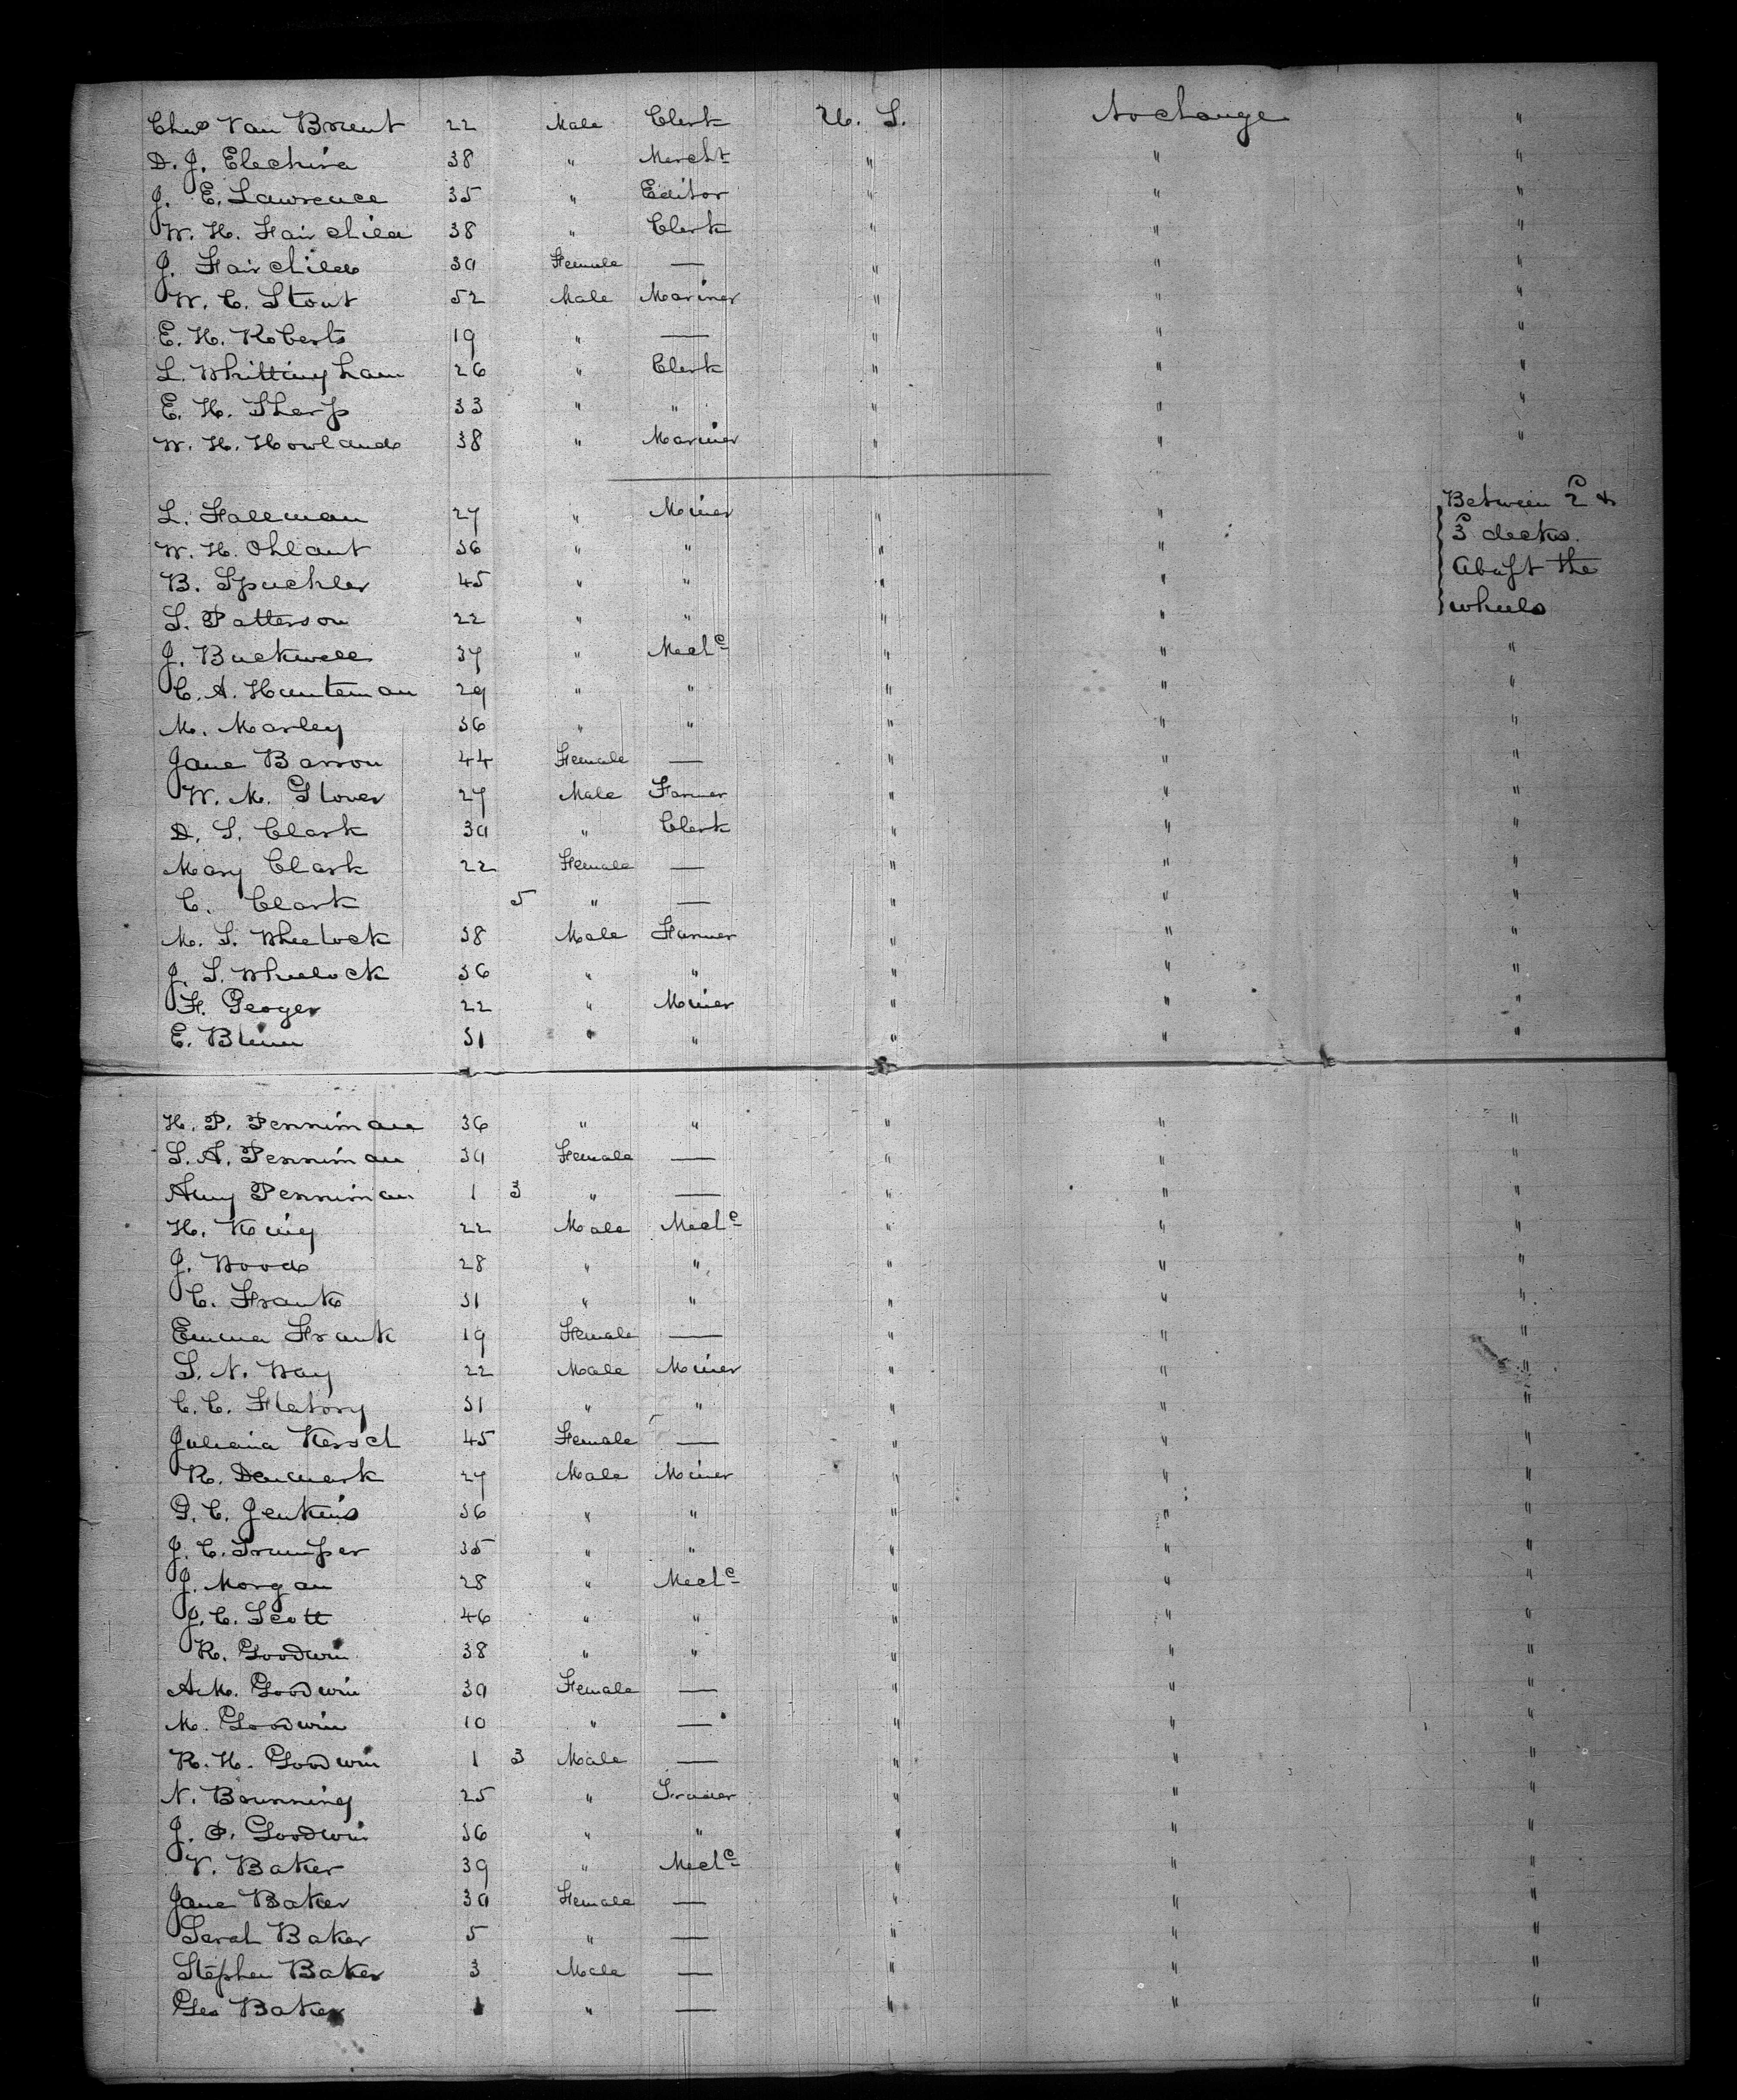 Chas Van Brunt 22 Male Clerk U. S. No change "
D. J. Elechira 38 " Mercht " " "
J. E. Lawrence 35 " Editor " " "
W. H. Fairchild 38 " Clerk " " "
J. Fairchild 30 Female — " " "
W. C. Stout 52 Male Mariner " " "
E. H. Roberts 19 " — " " "
L. Whittingham 26 " Clerk " " "
E. H. Sharp 33 " " " " "
W. H. Howland 38 " Mariner " " "
L. Falleman 27 " Miner " " Between 2d &
W. H. Ohlant 36 " " " " 3d decks.
B. Spuchler 45 " " " " Abaft the
S. Patterson 22 " " " " wheels
J. Buckwell 37 " Mechc " " "
C. A. Hunteman 29 " " " " "
M. Marley 36 " " " " "
Jane Barron 44 Female — " " "
W. M. Glover 27 Male Farmer " " "
D. S. Clark 30 " Clerk " " "
Mary Clark 22 Female — " " "
C. Clark 5 " — " " "
M. S. Wheelock 38 Male Farmer " " "
J. S. Wheelock 36 " " " " "
F. Geoger 22 " Miner " " "
E. Blinn 31 " " " " "
H. P. Penniman 36 " " " " "
S. A. Penniman 30 Female — " " "
Amy Penniman 1 3 " — " " "
H. King 22 Male Mechc " " "
J. Wood 28 " " " " "
C. Frank 31 " " " " "
Emma Frank 19 Female — " " "
S. N. Way 22 Male Miner " " "
C. C. Flatory 31 " " " " "
Juliana Kersch 45 Female — " " "
R. Denmark 27 Male Miner " " "
D. C. Jenkins 36 " " " " "
J. C. Trumper 35 " " " " "
J. Morgan 28 " Mechc " " "
J. C. Scott 46 " " " " "
R. Goodwin 38 " " " " "
A. M. Goodwin 30 Female — " " "
M. Goodwin 10 " — " " "
R. H. Goodwin 1 3 Male — " " "
N. Brunning 25 " Trader " " "
J. P. Goodwin 36 " " " " "
V. Baker 39 " Mechc " " "
Jane Baker 30 Female — " " "
Sarah Baker 5 " — " " "
Stephen Baker 3 Male — " " "
Geo Baker 1 " — " " "